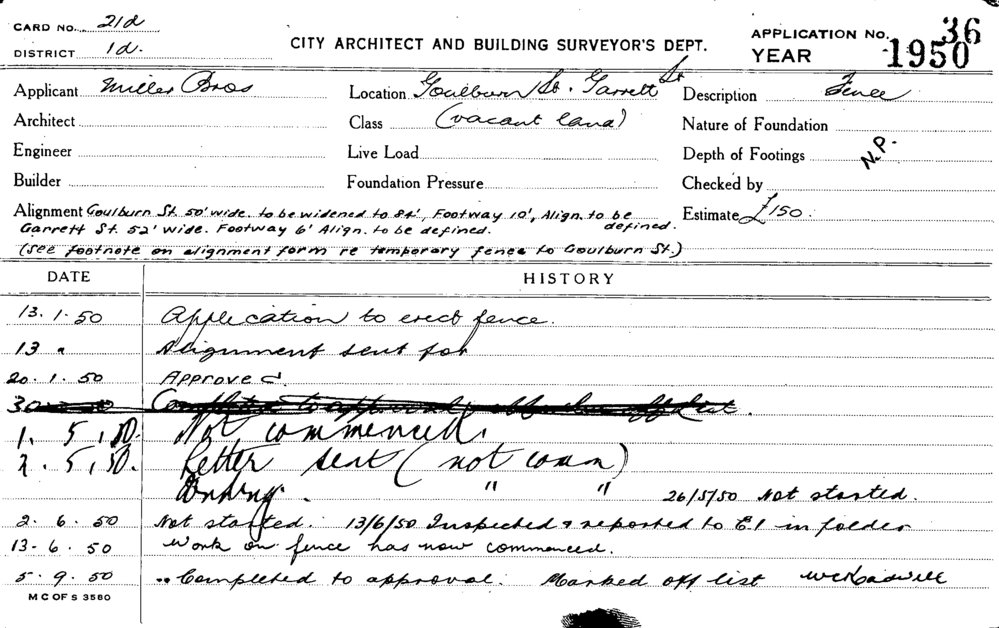 CARD No. 21d
DISTRICT 1d.
CITY ARCHITECT AND BUILDING SURVEYOR'S DEPT.
APPLICATION No. 36
YEAR 1950
Applicant Miller Bros
Location Goulburn St. Garrett St
Description Fence
Architect
Class (vacant land)
Nature of Foundation
Engineer
Live Load
Depth of Footings N.P.
Builder
Foundation Pressure
Checked by
Alignment Goulburn St. 50' wide. to be widened to 84', Footway 10', Align. to be defined.
Estimate £150.
Garrett St. 52' wide. Footway 6' Align. to be defined.
(See footnote on alignment form re temporary fence to Goulburn St.)
DATE HISTORY
13. 1. 50 Application to erect fence.
13 " Alignment sent for
20. 1. 50 Approved.
1. 5. 50. Not commenced.
2. 5. 50. Letter sent (not comm)
" " 26/5/50 Not started.
2. 6. 50 Not started. 13/6/50 Inspected & reported to E1 in folder
13. 6. 50 Work on fence has now commenced.
5. 9. 50 Completed to approval. Marked off list
M C OF S 3580